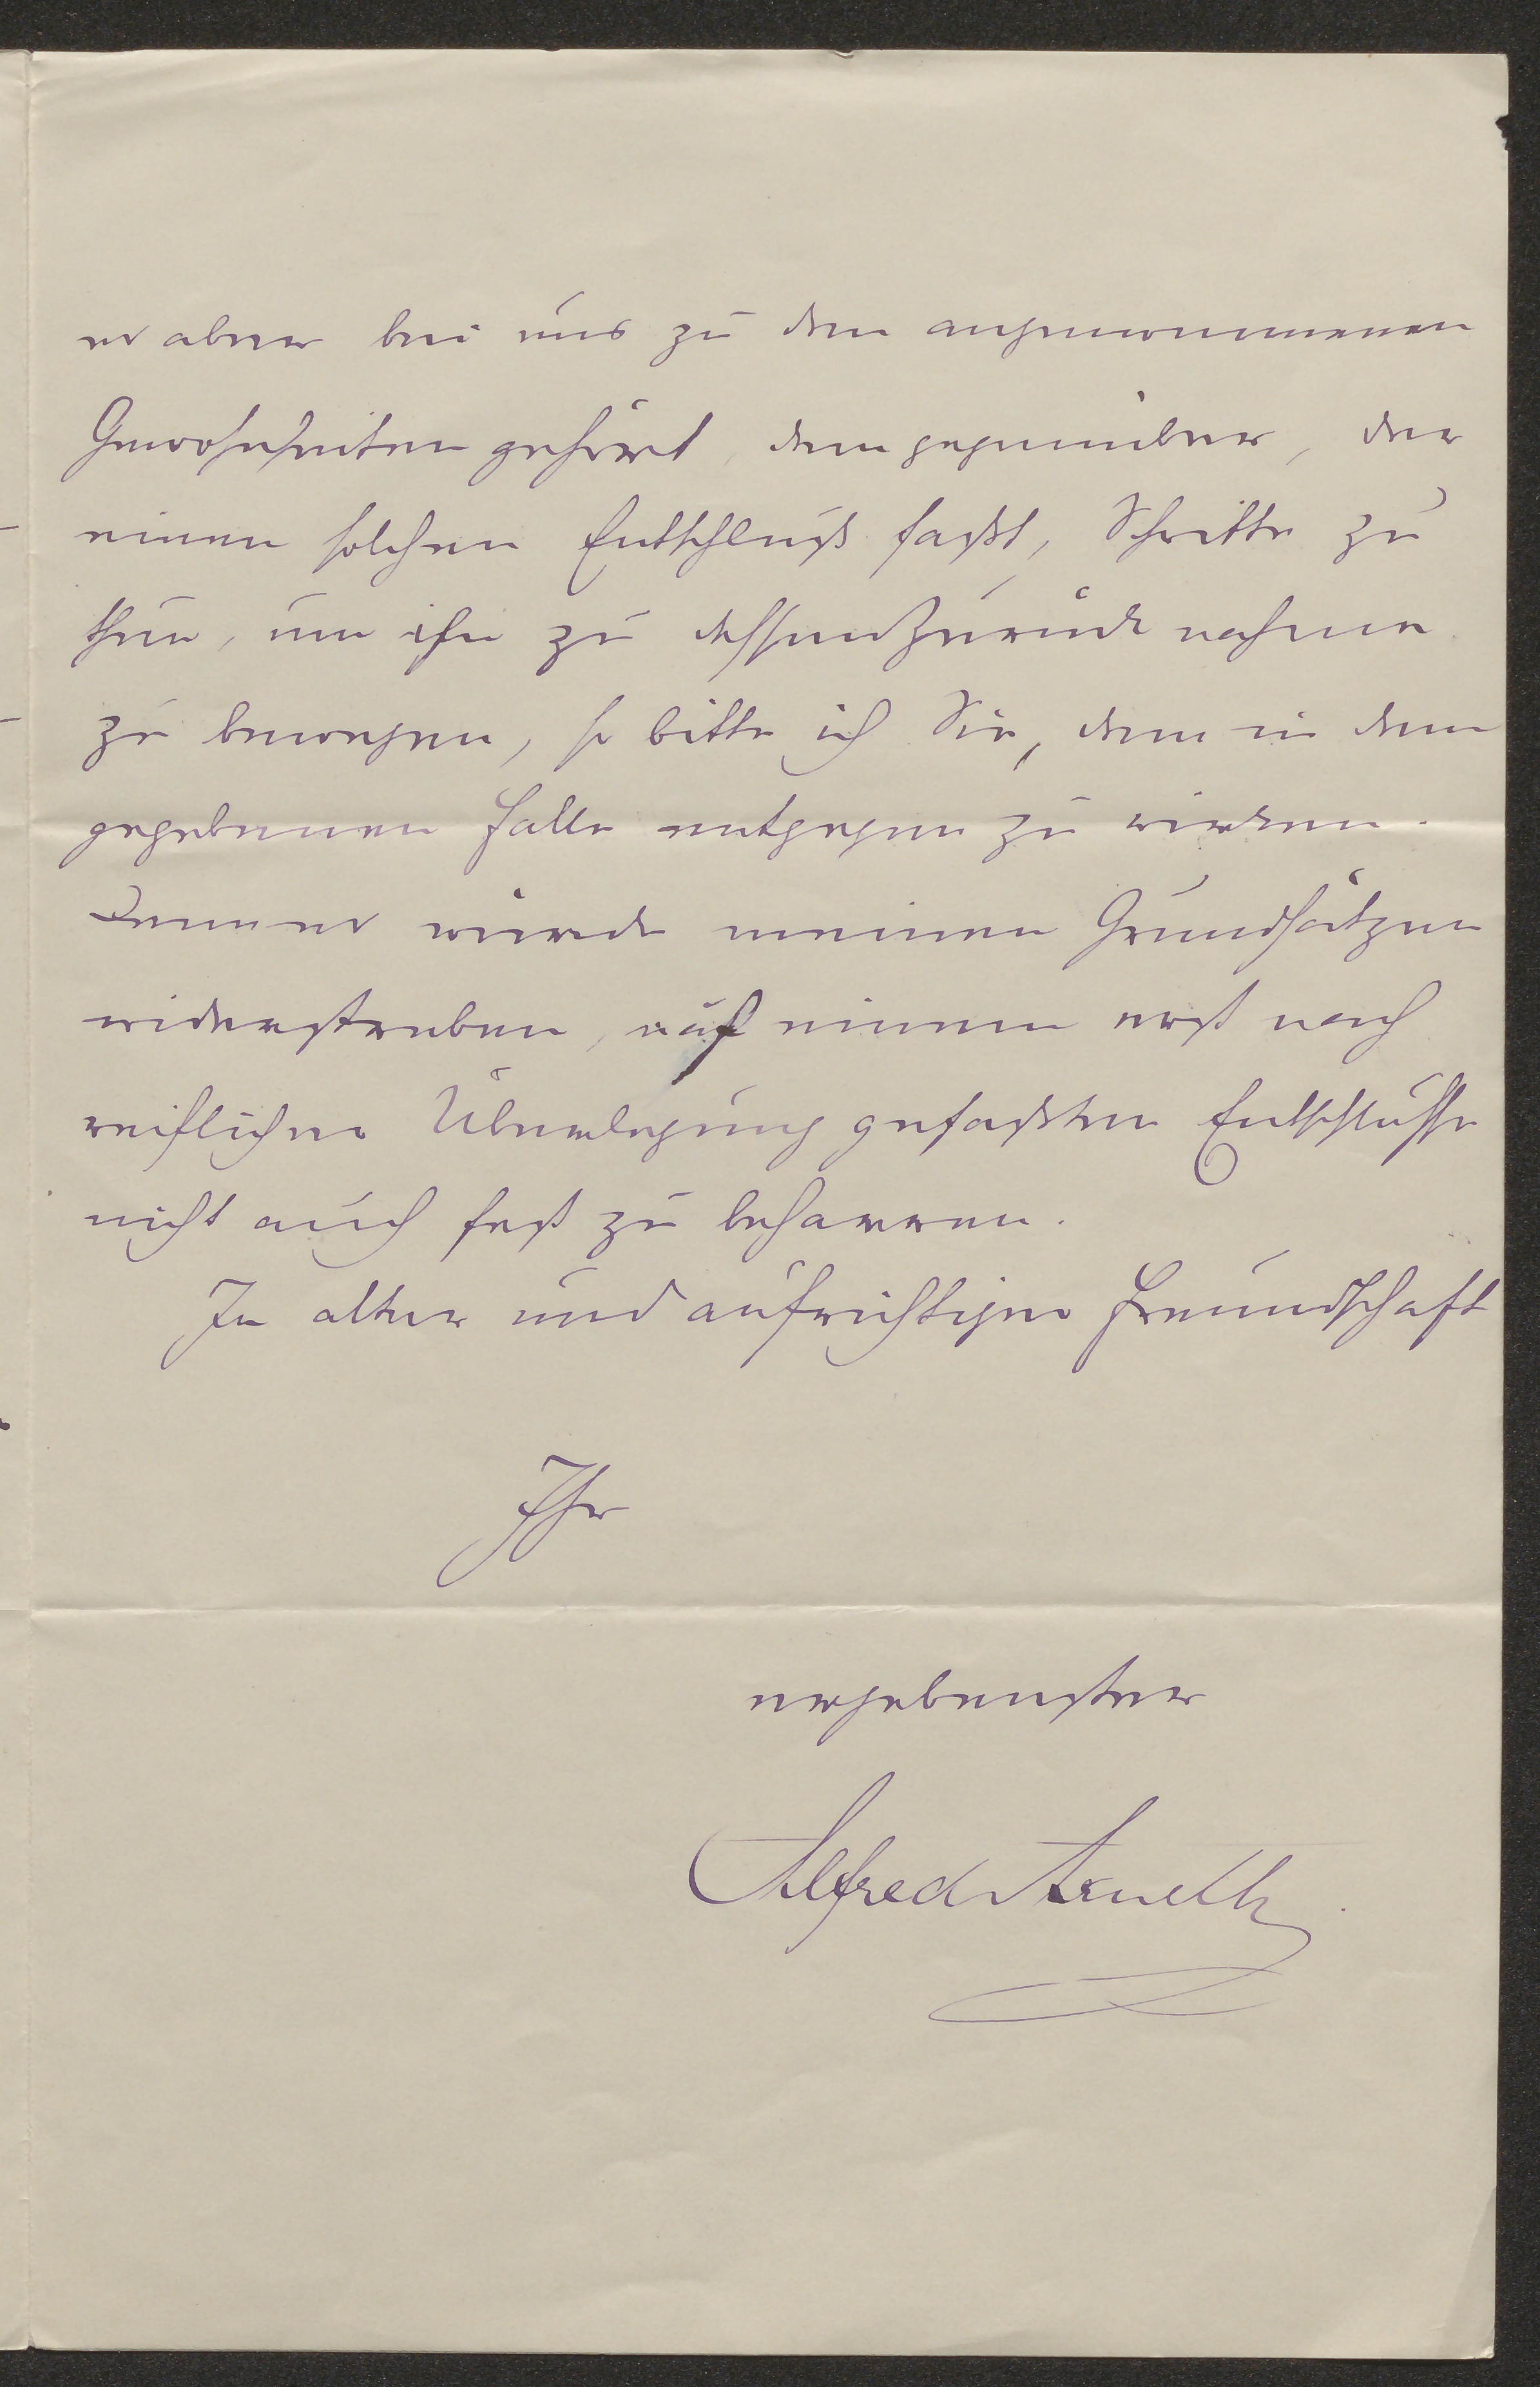 es aber bei uns zu den angenommenen
Gewohnheiten gehört, dem gegenüber, der
einen solchen Entschluß faßt, Schritte zu
thun, um ihn zu dessen Zurücknahme
zu bewegen, so bitte ich Sie, dem in dem
gegebenen Falle entgegen zu wirken.
Denn es würde meinen Grundsätzen
widerstreben, auf einem erst nach
reiflicher Überlegung gefaßten Entschlusse
nicht auch fest zu beharren.
In alter und aufrichtiger Freundschaft
Ihr
ergebenster
Alfred Arneth